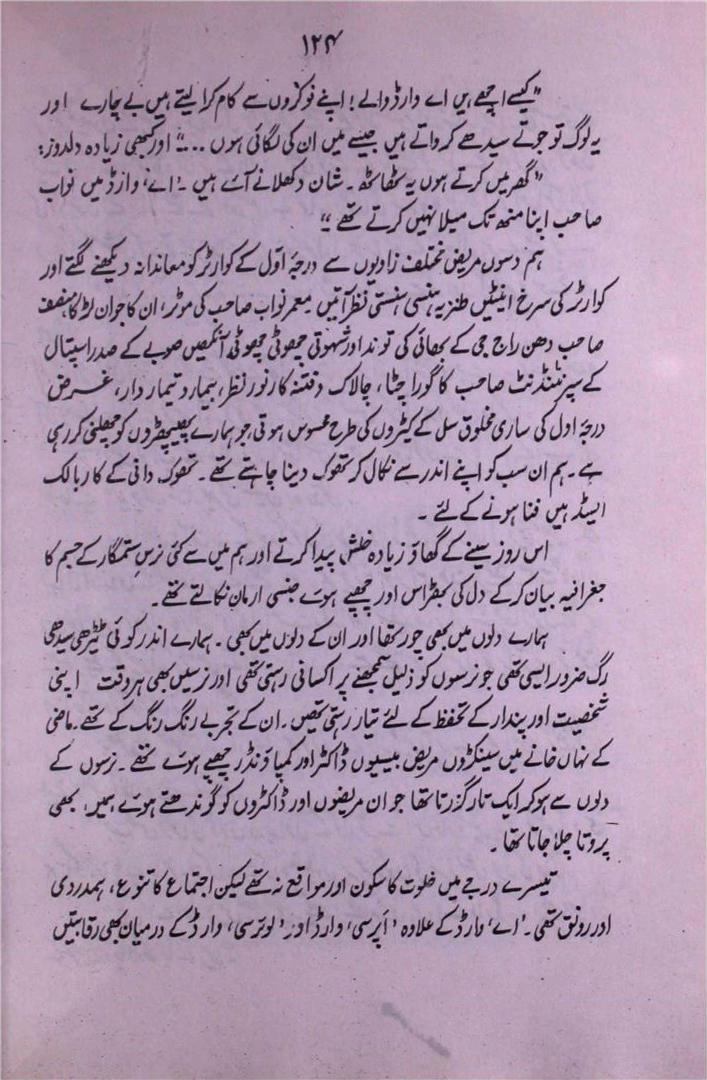 ۱۲۴
”کیسے اچھے ہیں اے وارڈ والے! اپنے نوکروں سے کام کرا لیتے ہیں بے چارے اور
یہ لوگ تو جوتے سیدھے کرواتے ہیں جیسے میں ان کی لگائی ہوں ...“ اور کبھی زیادہ دلدوز:
”گھر میں کرتے ہوں یہ ٹھاٹھ۔ شان دکھلانے آئے ہیں۔ 'اے' وارڈ میں نواب
صاحب اپنا منھ تک میلا نہیں کرتے تھے“
ہم دسوں مریض مختلف زاویوں سے درجۂ اوّل کے کوارٹر کو معاندانہ دیکھنے لگتے اور
کوارٹر کی سرخ اینٹیں طنزیہ ہنسی ہنستی نظر آتیں معمر نواب صاحب کی موٹر، ان کا جوان لڑکا، منصف
صاحب دھن راج جی کے بھائی کی توند اور شہوتی چھوٹی چھوٹی آنکھیں صوبے کے صدر اسپتال
کے سپرنٹنڈنٹ صاحب کا گورا چٹا، چالاک و فتنہ کار نور نظر، بیمار و تیمار دار، غرض
درجۂ اول کی ساری مخلوق سل کے کیڑوں کی طرح محسوس ہوتی، جو ہمارے پھیپھڑوں کو چھلنی کر رہی
ہے۔ ہم ان سب کو اپنے اندر سے نکال کر تھوک دینا چاہتے تھے۔ تھوک دانی کے کاربالک
ایسڈ میں فنا ہونے کے لئے ۔
اس روز سینے کے گھاؤ زیادہ خلش پیدا کرتے اور ہم میں سے کئی نرس ستمگار کے جسم کا
جغرافیہ بیان کر کے دل کی بھڑاس اور چھپے ہوئے جنسی ارمان نکالتے تھے۔
ہمارے دلوں میں بھی چور تھا اور ان کے دلوں میں بھی ۔ ہمارے اندر کوئی ٹیڑھی سیدھی
رگ ضرور ایسی تھی جو نرسوں کو ذلیل سمجھنے پر اکساتی رہتی تھی اور نرسیں بھی ہر وقت اپنی
شخصیت اور پندار کے تحفظ کے لئے تیار رہتی تھیں۔ ان کے تجربے رنگ رنگ کے تھے۔ ماضی
کے نہاں خانے میں سینکڑوں مریض بیسیوں ڈاکٹر اور کمپاؤنڈر چھپے ہوئے تھے ۔ نرسوں کے
دلوں سے ہو کہ ایک تار گزرتا تھا جو ان مریضوں اور ڈاکٹروں کو گوندھتے ہوئے ہمیں بھی
پروتا چلا جاتا تھا ۔
تیسرے درجے میں خلوت کا سکون اور مواقع نہ تھے لیکن اجتماع کا تنوع، ہمدردی
اور رونق تھی۔ 'اے' وارڈ کے علاوہ 'اپرسی' وارڈ اور 'لوئرسی' وارڈ کے درمیان بھی رقابتیں